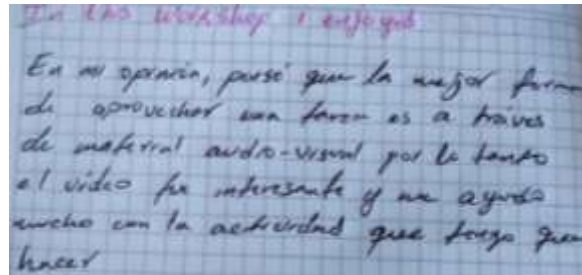 In this workshop I enjoyed
En mi opinión, pensé que la mejor forma
de aprovechar una tarea es a través
de material audio-visual por lo tanto
el video fue interesante y me ayudo
mucho con la actividad que tengo que
hacer